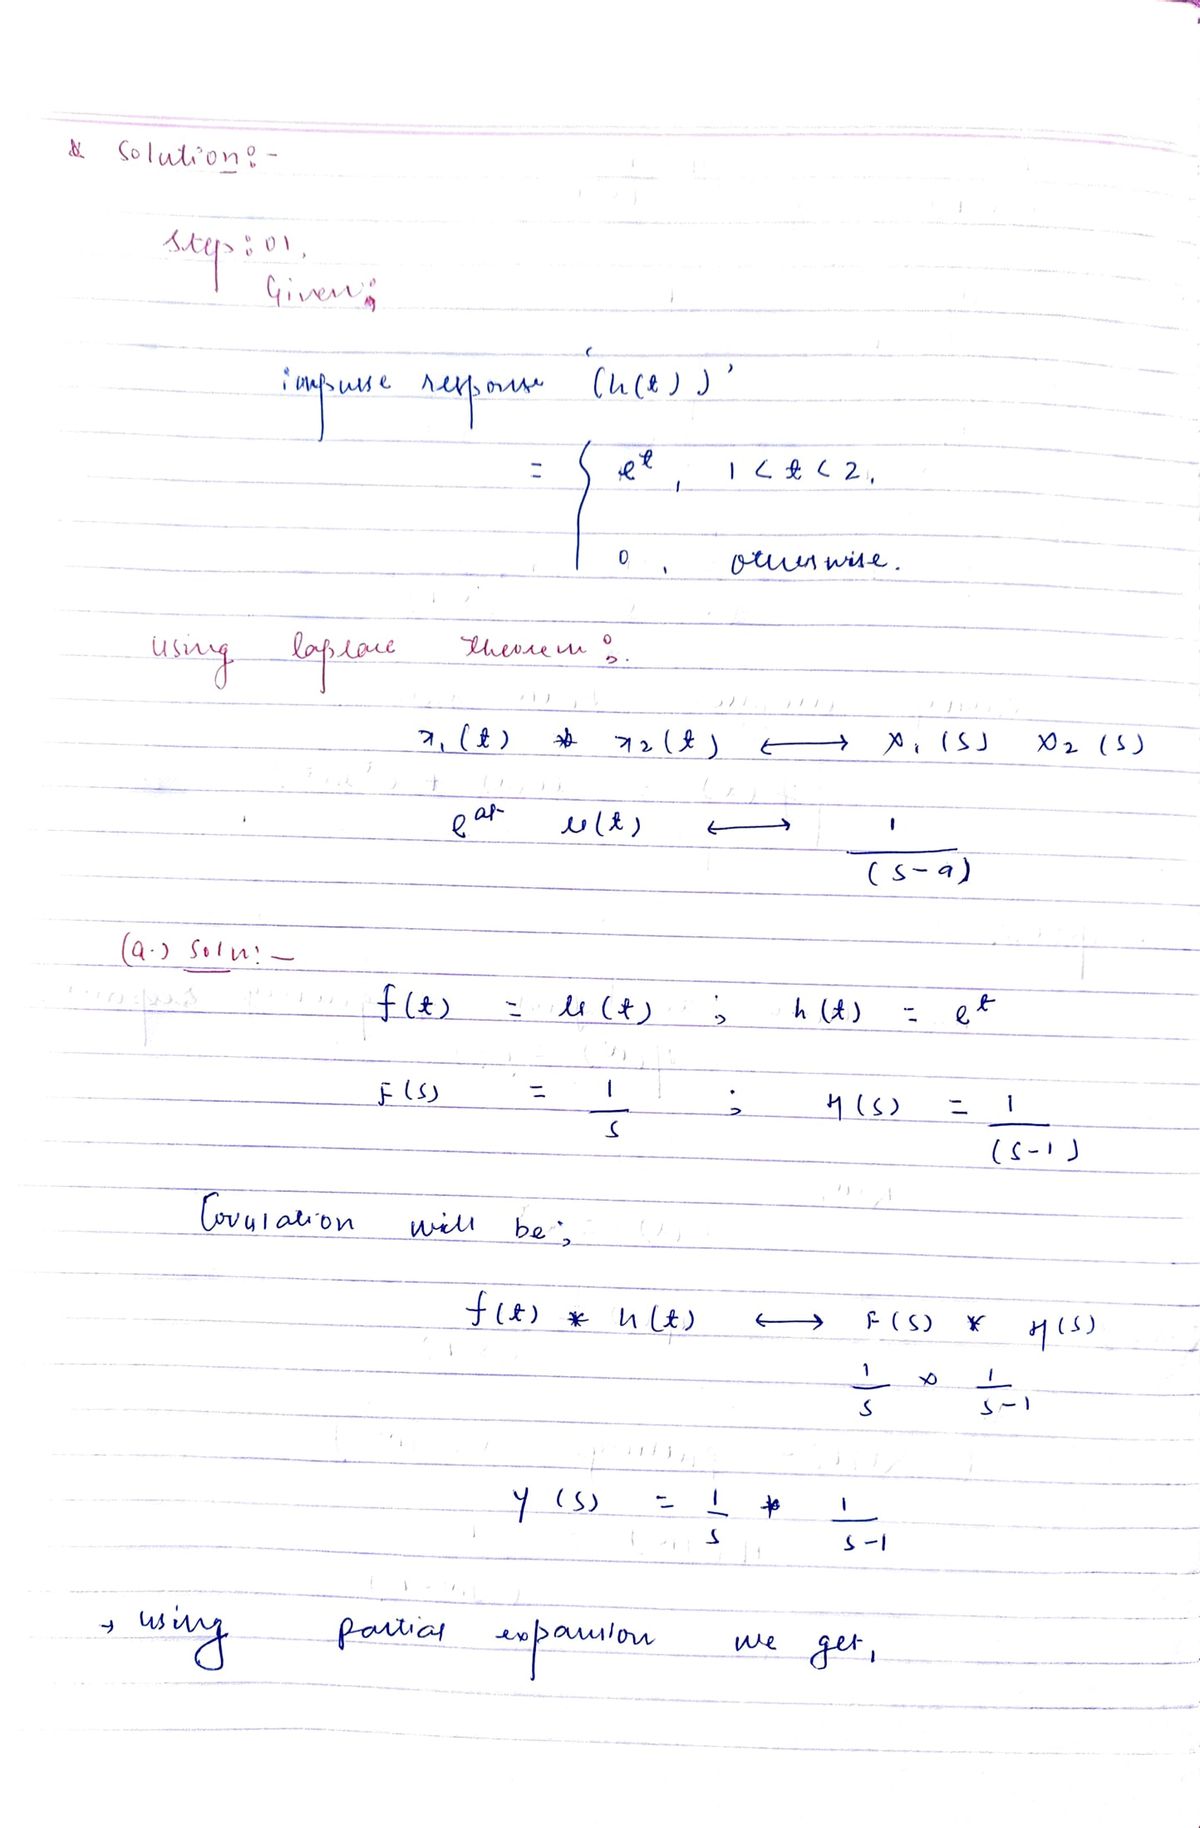 * Solution:-
Step:01,
Given;
impulse response (h(t))'
= { e^t , 1 < t < 2,
0 , otherwise.
using laplace theorem:
x₁(t) * x₂(t) ⟷ X₁(s) X₂(s)
e^at u(t) ⟷ 1/(s-a)
(a.) Soln:-
f(t) = u(t) ; h(t) = e^t
F(s) = 1/s ; H(s) = 1/(s-1)
Covulation will be;
f(t) * h(t) ⟷ F(s) * H(s)
1/s × 1/s-1
Y(s) = 1/s * 1/s-1
→ using partial expansion we get,